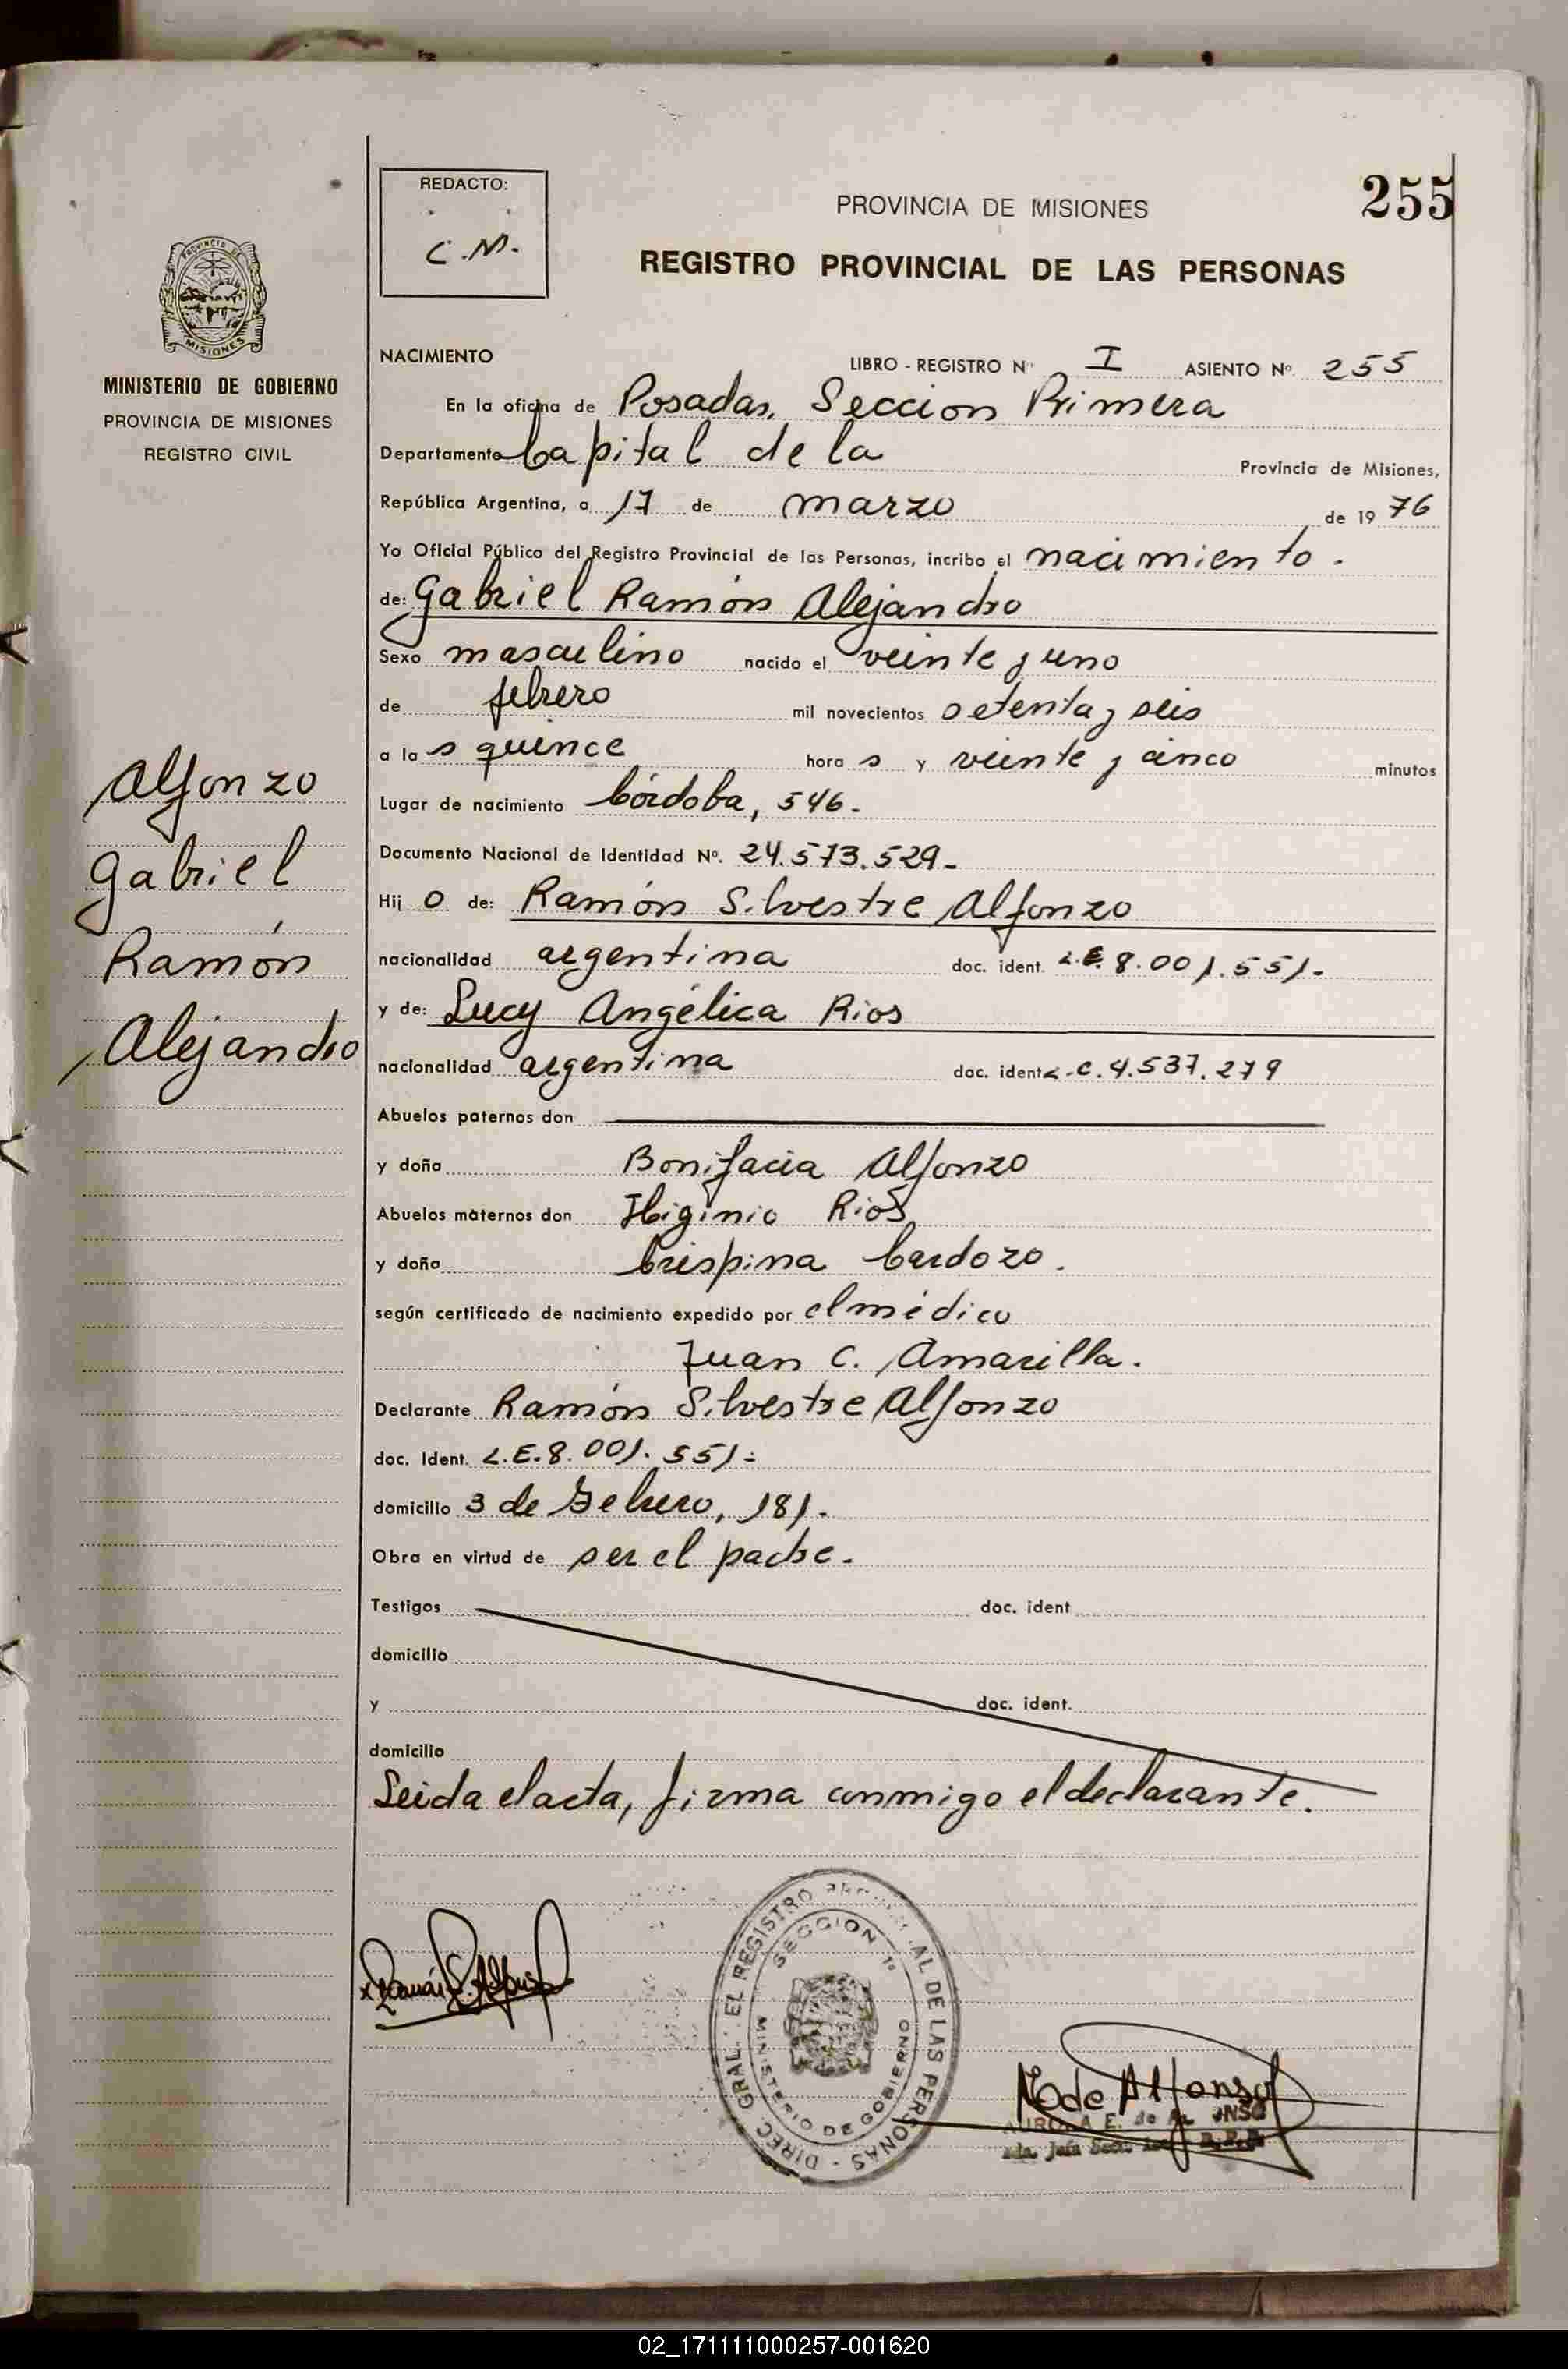 255
REDACTO:
C.M.
PROVINCIA DE MISIONES
REGISTRO PROVINCIAL DE LAS PERSONAS
PROVINCIA DE
MISIONES
MINISTERIO DE GOBIERNO
PROVINCIA DE MISIONES
REGISTRO CIVIL
Alfonzo
Gabriel
Ramón
Alejandro
NACIMIENTO LIBRO - REGISTRO Nº I ASIENTO Nº 255
En la oficina de Posadas, Seccion Primera
Departamento Capital de la Provincia de Misiones,
República Argentina, a 17 de marzo de 19 76
Yo Oficial Público del Registro Provincial de las Personas, incribo el nacimiento.
de: Gabriel Ramón Alejandro
Sexo masculino nacido el veinte y uno
de febrero mil novecientos setenta y seis
a la s quince hora s y veinte y cinco minutos
Lugar de nacimiento Córdoba, 546.
Documento Nacional de Identidad Nº. 24.573.529.
Hij o de: Ramón Silvestre Alfonzo
nacionalidad argentina doc. ident. L.E. 8.001.551.
y de: Lucy Angélica Rios
nacionalidad argentina doc. ident L.C. 4.537.279
Abuelos paternos don
y doña Bonifacia Alfonzo
Abuelos maternos don Higinio Rios
y doña Crispina Cardozo.
según certificado de nacimiento expedido por el médico
Juan C. Amarilla.
Declarante Ramón Silvestre Alfonzo
doc. Ident. L.E. 8.001.551.
domicilio 3 de Febrero, 181.
Obra en virtud de ser el padre.
Testigos doc. ident
domicilio
y doc. ident.
domicilio
Leida el acta, firma conmigo el declarante.
Ramón S. Alfonzo
DIREC. GRAL. EL REGISTRO AL DE LAS PERSONAS
SECCION 1º
MINISTERIO DE GOBIERNO
de Alfonso
02_171111000257-001620